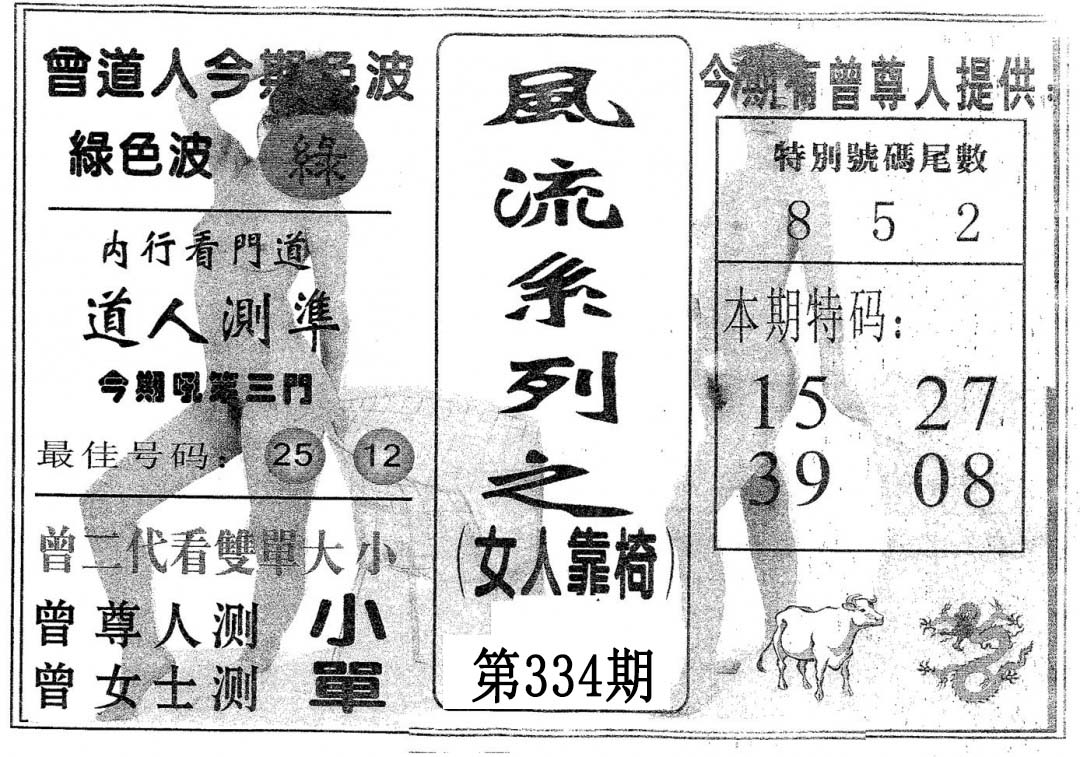 曾道人今期色波
綠色波 綠
内行看門道
道人測準
今期吼第三門
最佳号码: 25 12
曾二代看雙單大小
曾尊人测 小
曾女士测 單
風流系列之
(女人靠椅)
第334期
今期有曾尊人提供:
特別號碼尾數
8 5 2
本期特码:
15 27
39 08